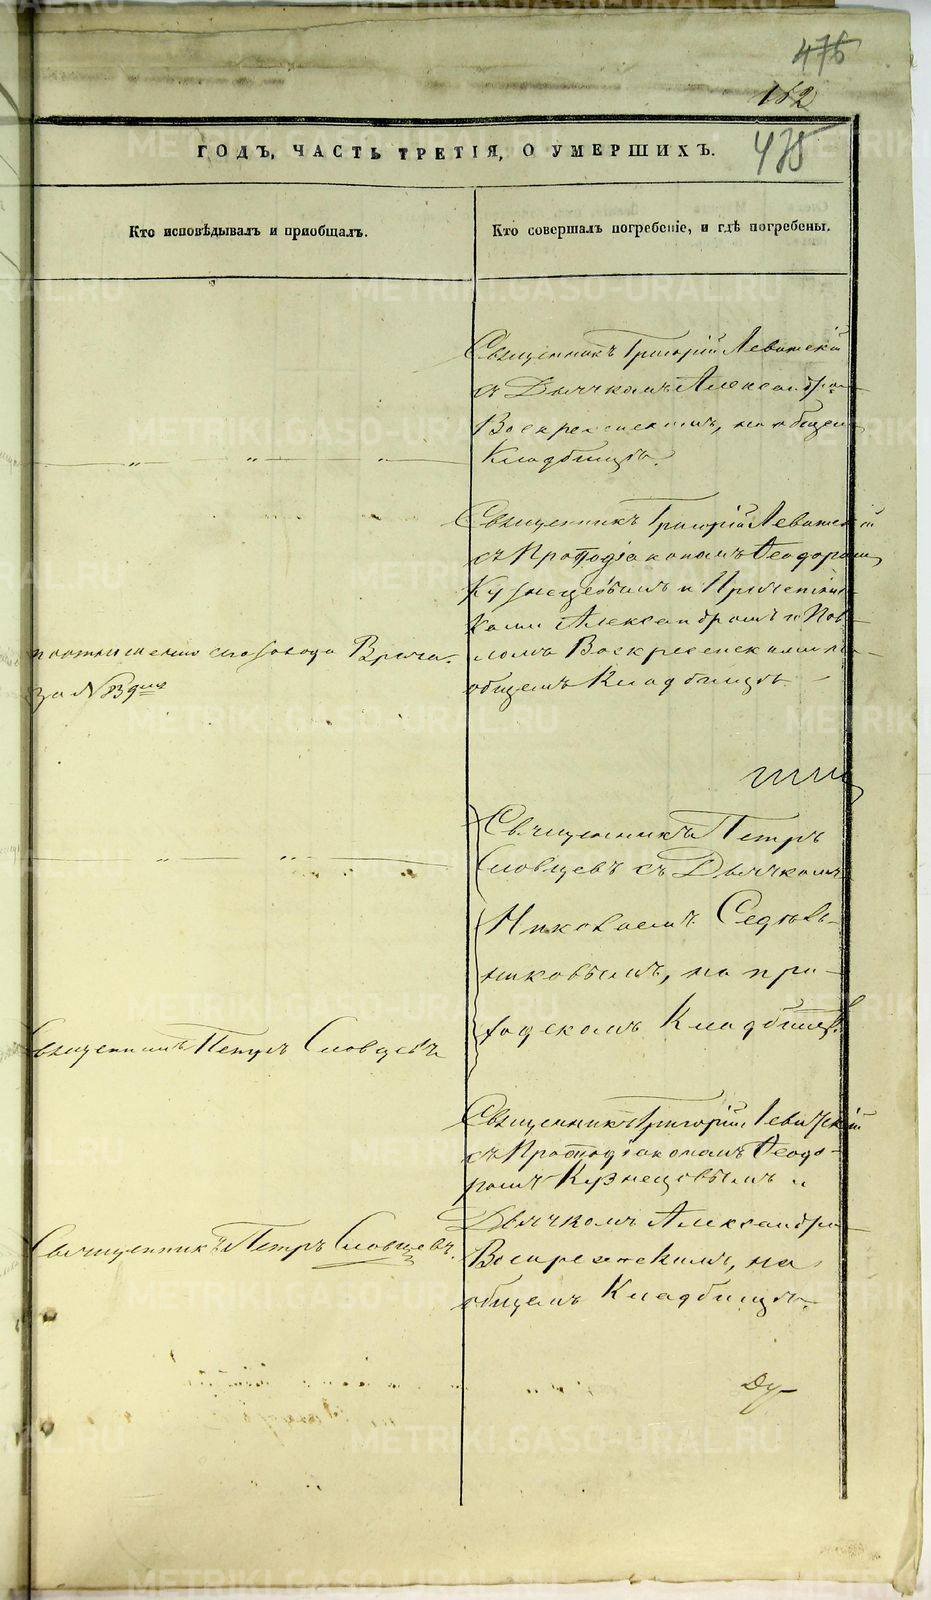 476
152
475
ГОДЪ, ЧАСТЬ ТРЕТІЯ, О УМЕРШИХЪ.
Кто исповѣдывалъ и приобщалъ.
Кто совершалъ погребеніе, и гдѣ погребены.
Священникъ Григорій Левитскій
съ Дьячкомъ Александром
Воскресенскимъ, на общем
Кладбищѣ.
Священникъ Григорій Левитскій
съ Протодіакономъ Ѳеодоромъ
Кузнецовымъ и Причетни-
ками Александромъ и Пав-
ломъ Воскресенскими на
общемъ Кладбищѣ.
по отношенію Врача
за № 3
Священникъ Петръ
Словцевъ съ Дьячкомъ
Николаемъ Седель-
никовымъ, на при-
ходскомъ Кладбищѣ.
Священникъ Петръ Словцевъ
Священникъ Григорій Левитскій
съ Протодіакономъ Ѳеодо-
ромъ Кузнецовымъ и
Дьячкомъ Александром
Воскресенскимъ, на
общемъ Кладбищѣ.
Священникъ Петръ Словцевъ.
Ду-
METRIKI.GASO-URAL.RU